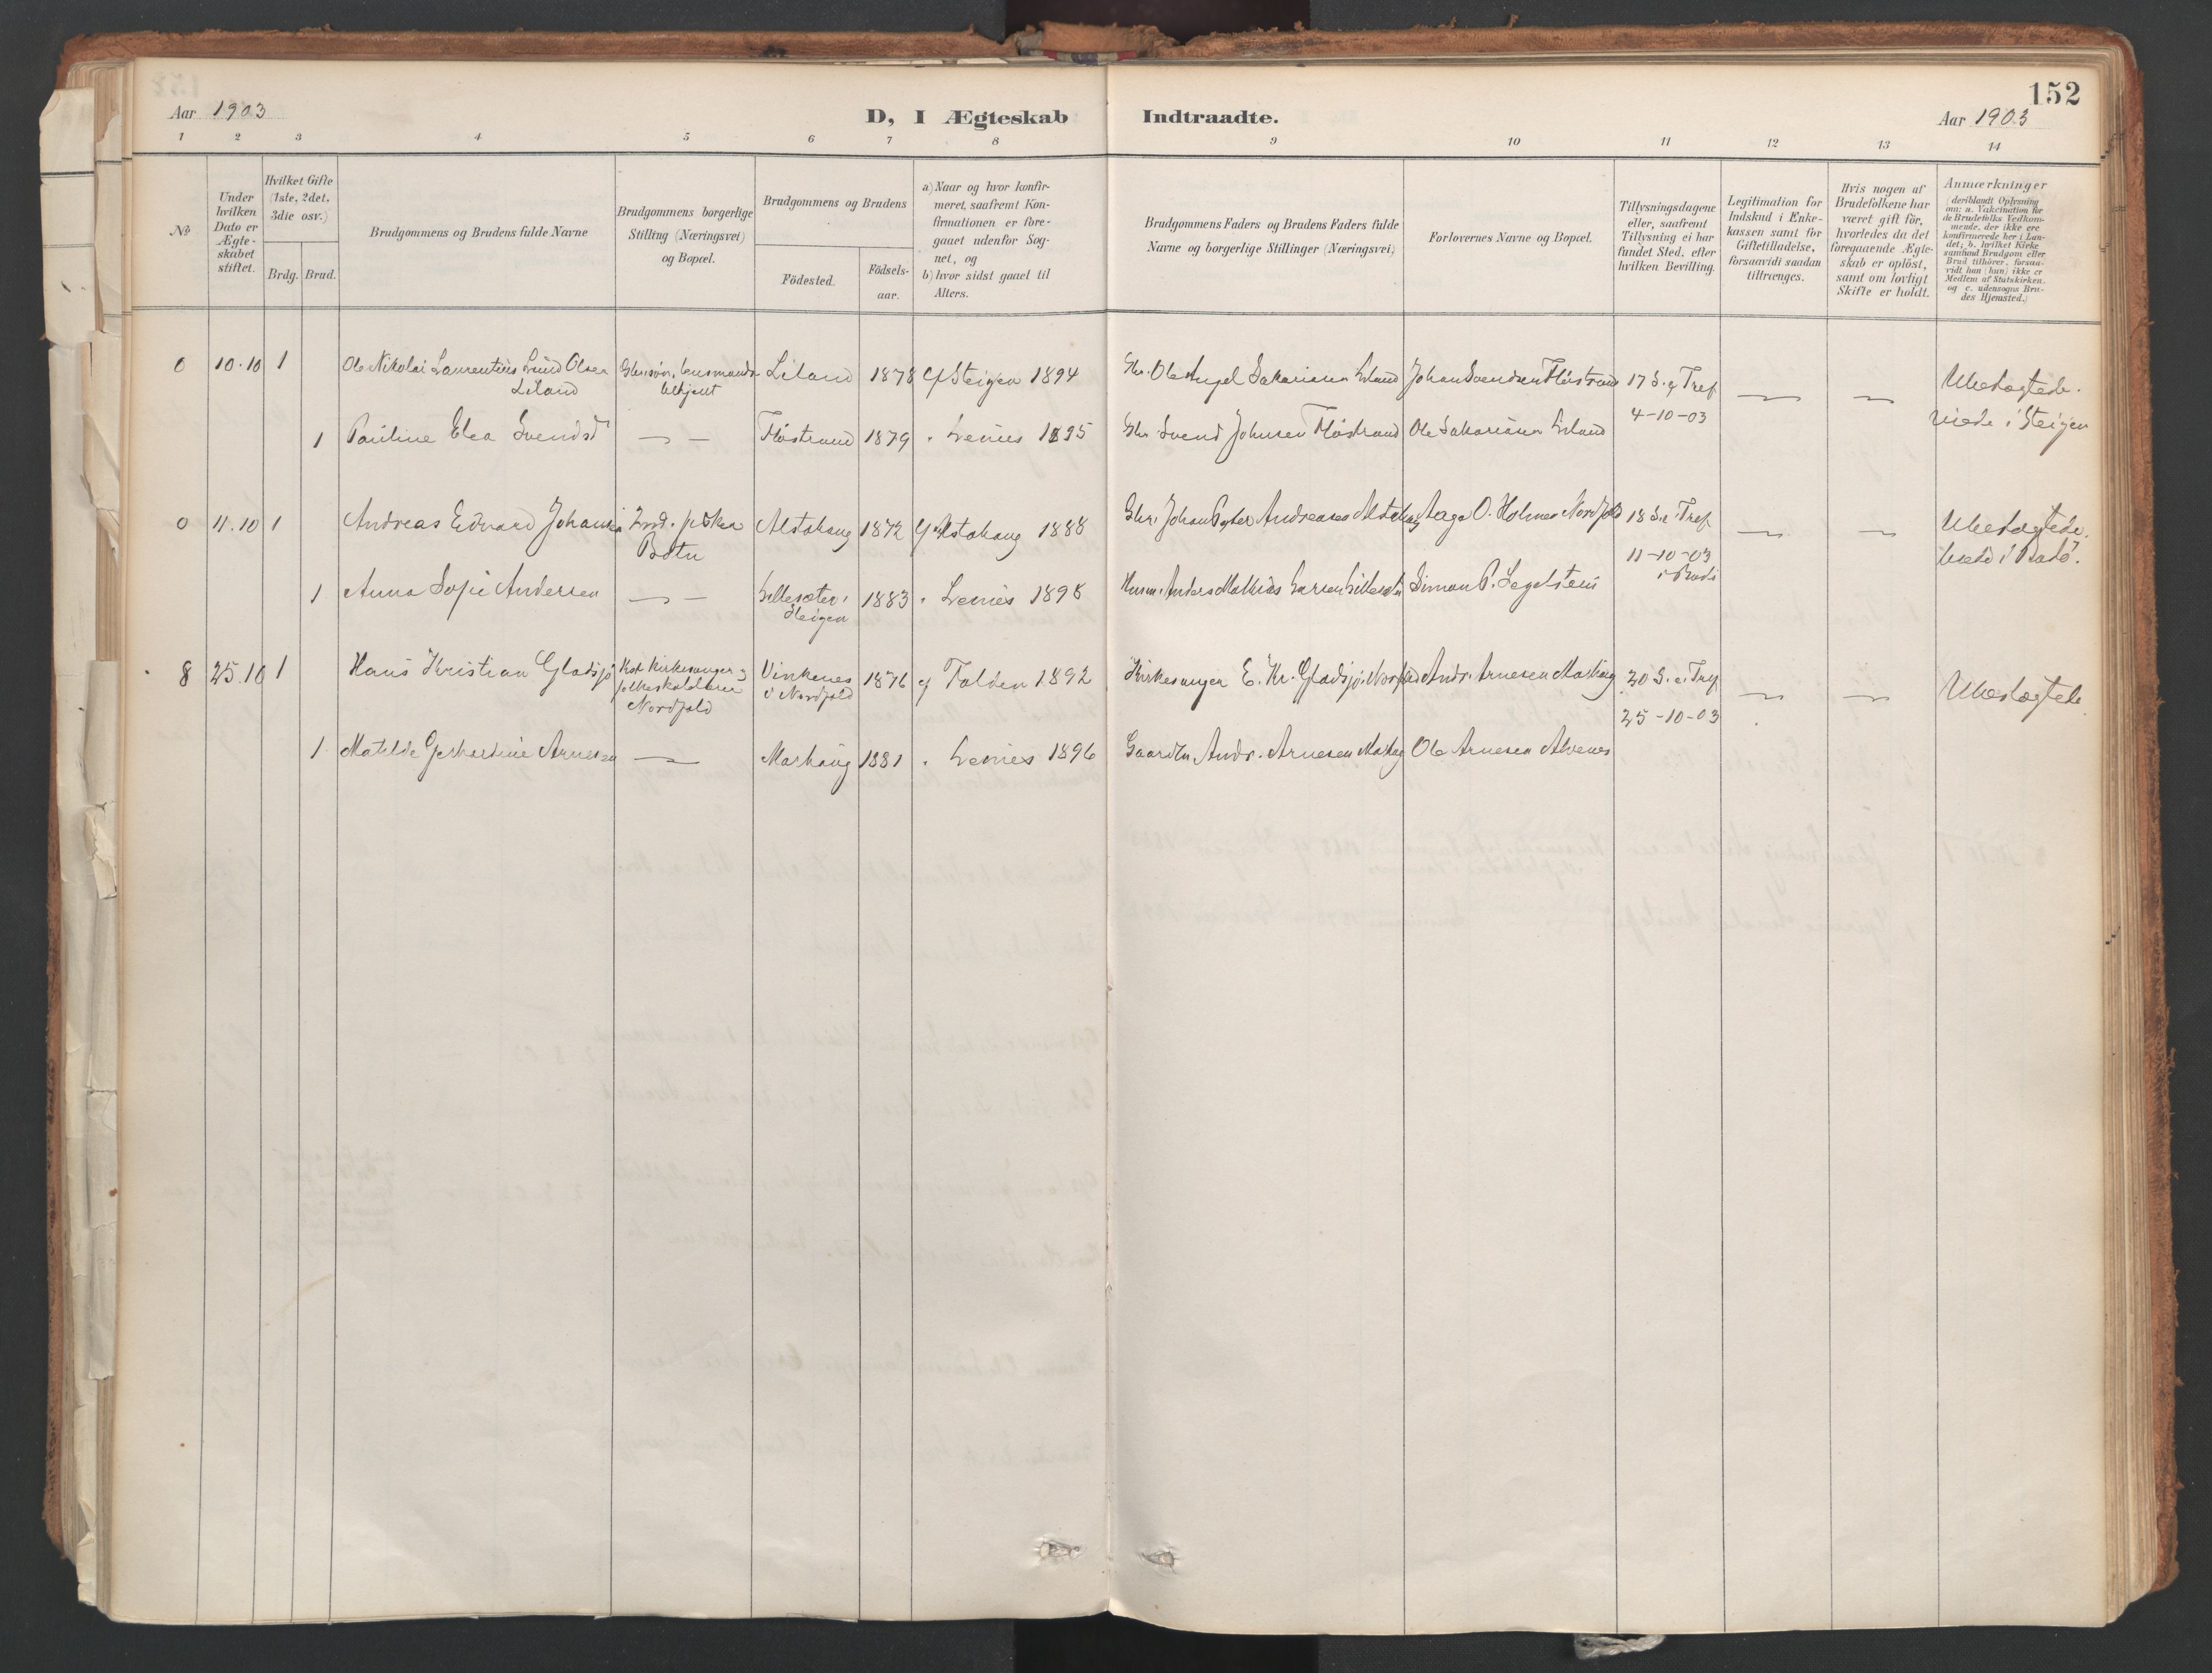 152
Aar 1903
D, I Ægteskab Indtraadte.
Aar 1903
1 2 3 4 5 6 7 8 9 10 11 12 13 14
№
Under
hvilken
Dato er
Ægte-
skabet
stiftet.
Hvilket Gifte
(1ste, 2det,
3die osv.)
Brdg. Brud.
Brudgommens og Brudens fulde Navne
Brudgommens borgerlige
Stilling (Næringsvei)
og Bopæl.
Brudgommens og Brudens
Födested.
Födsels-
aar.
a) Naar og hvor konfir-
meret, saafremt Kon-
firmationen er fore-
gaaet udenfor Sog-
net, og
b) hvor sidst gaaet til
Alters.
Brudgommens Faders og Brudens Faders fulde
Navne og borgerlige Stillinger (Næringsvei)
Forlovernes Navne og Bopæl.
Tillysningsdagene
eller, saafremt
Tillysning ei har
fundet Sted, efter
hvilken Bevilling.
Legitimation for
Indskud i Enke-
kassen samt for
Giftetilladelse,
forsaavidt saadan
tiltrænges.
Hvis nogen af
Brudefolkene har
været gift för,
hvorledes da det
foregaaende Ægte-
skab er oplöst,
samt om lovligt
Skifte er holdt.
Anmærkninger
(deriblandt Oplysning
om: a. Vakcination for
de Brudefolks Vedkom-
mende, der ikke ere
konfirmerede her i Lan-
det; b. hvilket Kirke
samfund Brudgom eller
Brud tilhörer, forsaa-
vidt han (hun) ikke er
Medlem af Statskirken.
og c. udensogns Bru-
des Hjemsted.)
0 10.10 1 Ole Nikolai Laurentius Lund Olsen
Liland
Gbr.sön, lensmands
betjent
Liland 1878 Steigen 1894
Gbr. Ole Angel Sakariasen Liland
Johan Svendsen Flöstrand
17 S. e Tref
4-10-03
Ubeslægtede.
viede i Steigen
1 Pauline Elea Svendsd — Flöstrand 1879 " Leines 1895
Gbr Svend Johnsen Flöstrand
Ole Sakariasen Liland
0 11.10 1 Andreas Edvard Johans
Botn
Alstahaug 1872 Alstahaug 1888
Gbr. Johan Peter Andreasen Alstahaug
Aage O. Holmen Nordfold
18 S. e. Tref
11-10-03
i Bodö
Ubeslægtede.
viede i Bodö.
1 Anna Sofie Andersen — Lillesæter i
Steigen
1883 " Leines 1898
Husm. Anders Mathias Larsen Lillesæter
Simon P. Segelsteis
8 25.10 1 Hans Kristian Gladsjö
Kst. Kirkesanger og
folkeskolelærer
Nordfold
Vinkenes
i Nordfold
1876 Folden 1892
Kirkesanger E. Kr. Gladsjö, Nordfold
Andr. Arnesen Markaug
20 S. e. Tref
25-10-03
Ubeslægtede
1 Matilde Gerhardine Arnesen — Markaug 1881 " Leines 1896
Gaardbr. Andr. Arnesen Markaug
Ole Arnesen Alvenes